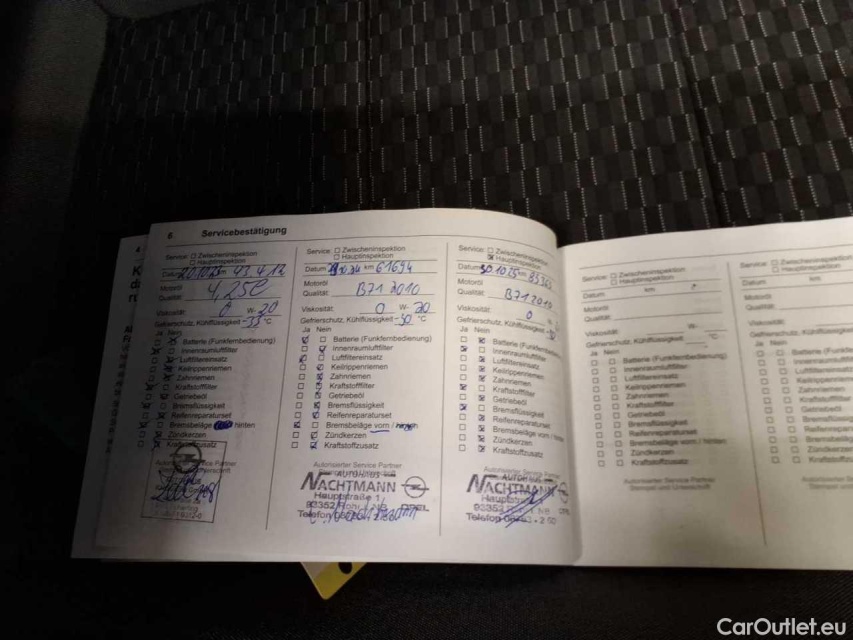 6. Servicebestätigung
Service: Zwischeninspektion
Hauptinspektion
Datum 20.10.23 km 43 412
Motoröl
Qualität: 4,25l
Viskosität: 0 W- 20
Gefrierschutz, Kühlflüssigkeit -33 °C
Ja Nein
Batterie (Funkfernbedienung)
Innenraumluftfilter
Luftfiltereinsatz
Keilrippenriemen
Zahnriemen
Kraftstofffilter
Getriebeöl
Bremsflüssigkeit
Reifenreparaturset
Bremsbeläge hinten
Zündkerzen
Kraftstoffzusatz
Service: Zwischeninspektion
Hauptinspektion
Datum km 61694
Motoröl
Qualität: B71 2010
Viskosität: 0 W- 20
Gefrierschutz, Kühlflüssigkeit -30 °C
Ja Nein
Batterie (Funkfernbedienung)
Innenraumluftfilter
Luftfiltereinsatz
Keilrippenriemen
Zahnriemen
Kraftstofffilter
Getriebeöl
Bremsflüssigkeit
Reifenreparaturset
Bremsbeläge vorn / hinten
Zündkerzen
Kraftstoffzusatz
Autorisierter Service Partner
AUTOHAUS
NACHTMANN
Hauptstraße 1
93352 Rohr i. NB OPEL
Telefon
Service: Zwischeninspektion
Hauptinspektion
Datum 30.10.25 km
Motoröl
Qualität: B71 2010
Viskosität: 0 W-
Gefrierschutz, Kühlflüssigkeit
Ja Nein
Batterie (Funkfernbedienung)
Innenraumluftfilter
Luftfiltereinsatz
Keilrippenriemen
Zahnriemen
Kraftstofffilter
Getriebeöl
Bremsflüssigkeit
Reifenreparaturset
Bremsbeläge vorn / hinten
Zündkerzen
Kraftstoffzusatz
Autorisierter Service Partner
AUTOHAUS
NACHTMANN
Hauptstraße
93352 NB OPEL
Telefon
Service: Zwischeninspektion
Hauptinspektion
Datum km
Motoröl
Qualität:
Viskosität: W-
Gefrierschutz, Kühlflüssigkeit °C
Ja Nein
Batterie (Funkfernbedienung)
Innenraumluftfilter
Luftfiltereinsatz
Keilrippenriemen
Zahnriemen
Kraftstofffilter
Getriebeöl
Bremsflüssigkeit
Reifenreparaturset
Bremsbeläge vorn / hinten
Zündkerzen
Kraftstoffzusatz
Autorisierter Service Partner
Stempel und Unterschrift
Service:
Datum
Motoröl
Qualität:
Viskosität:
Gefrierschutz,
Ja Nein
Batterie
Innenraumluftfilter
Luftfiltereinsatz
Keilrippenriemen
Zahnriemen
Kraftstofffilter
Getriebeöl
Bremsflüssigkeit
Reifenreparaturset
Bremsbeläge
Zündkerzen
Kraftstoffzusatz
CarOutlet.eu